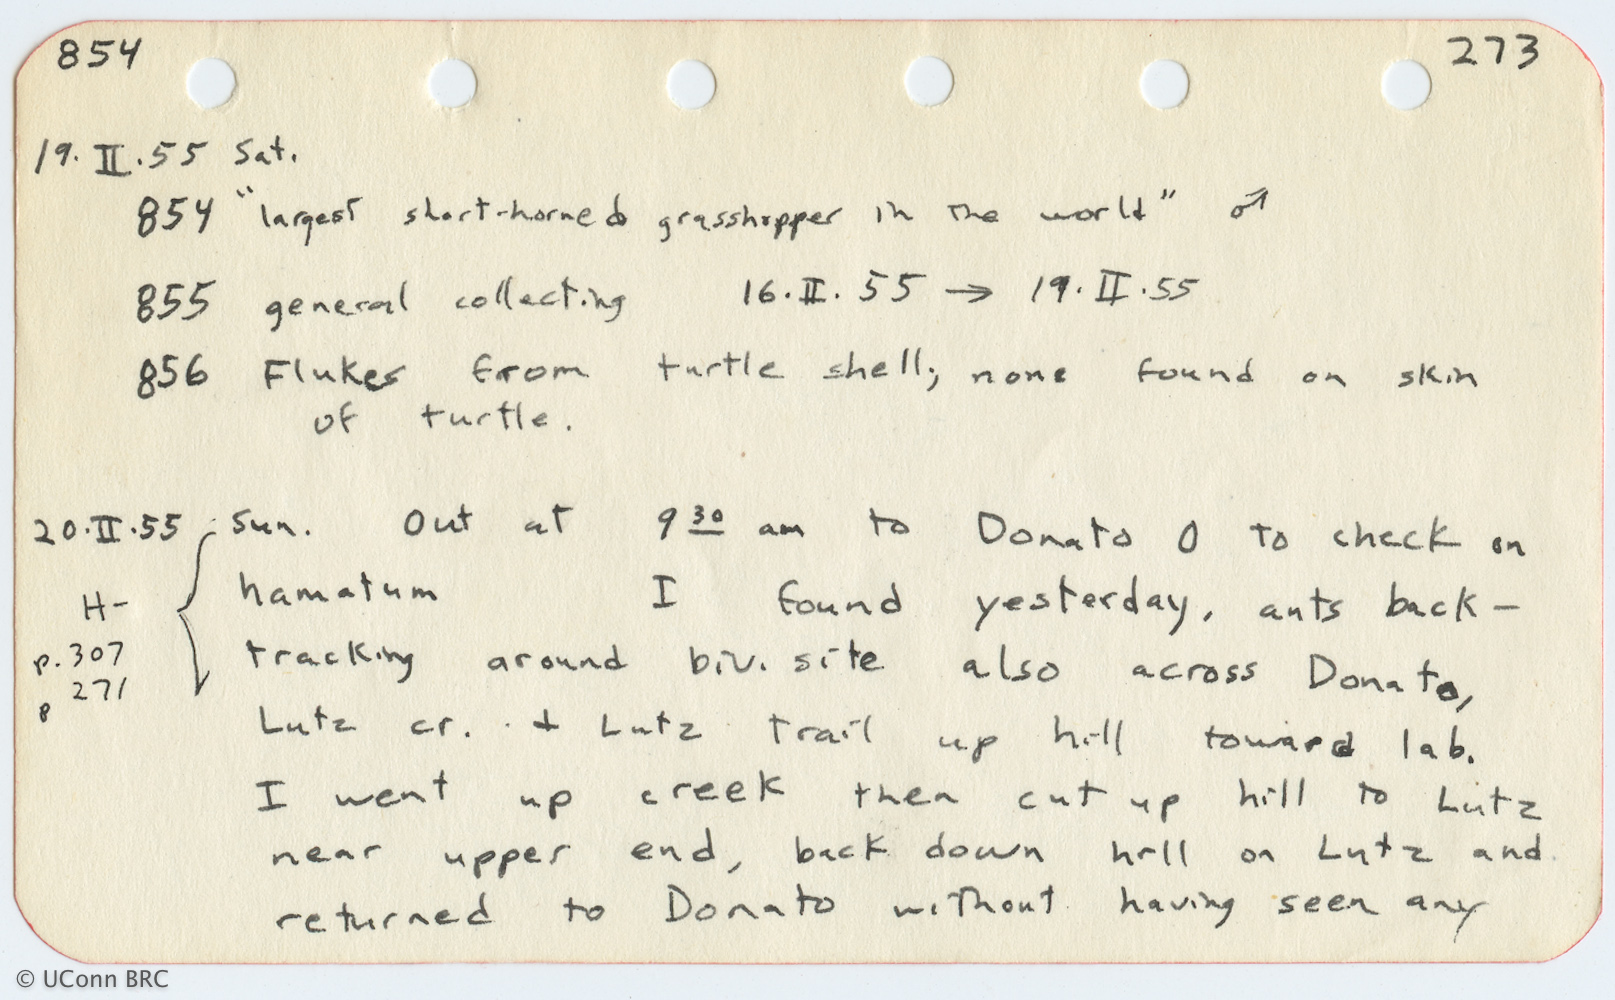 854 273
19.II.55 Sat.
854 "largest short-horned grasshopper in the world" ♂
855 general collecting 16.II.55 → 19.II.55
856 Flukes from turtle shell; none found on skin
of turtle.
20.II.55 Sun. Out at 9 30 am to Donato 0 to check on
H- hamatum I found yesterday, ants back-
p. 307 tracking around biv. site also across Donato,
p 271 Lutz cr. + Lutz trail up hill toward lab.
I went up creek then cut up hill to Lutz
near upper end, back down hill on Lutz and
returned to Donato without having seen any
© UConn BRC